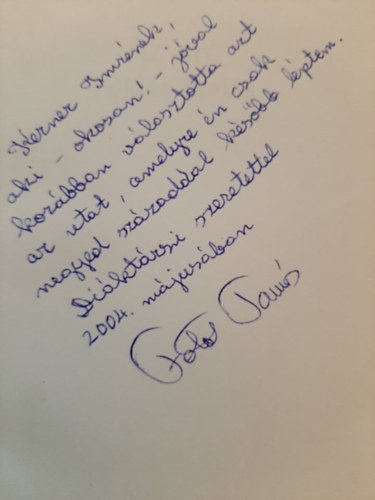 Werner Imrének,
aki - okosan! - jóval
korábban választotta azt
az utat, amelyre én csak
negyed századdal később léptem.
Diáktársi szeretettel
2004. májusában
Tamás